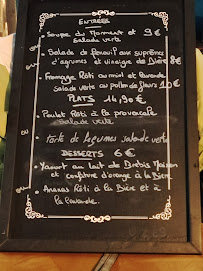 ENTRÉES
• Soupe du Moment et 9€
Salade verte
• Salade de fenouil aux suprêmes
d'agrumes et vinaigre de Bière 8€
• Fromage Rôti au miel et lavande
Salade verte au pollen de fleurs 10€
PLATS 14,90€
• Poulet Rôti à la provençale
Salade verte
• tarte de légumes salade verte
DESSERTS 6€
• Yaourt au lait de Brebis Maison
et confiture d'orange à la Bière
• Ananas Rôti à la Bière et à
la lavande.